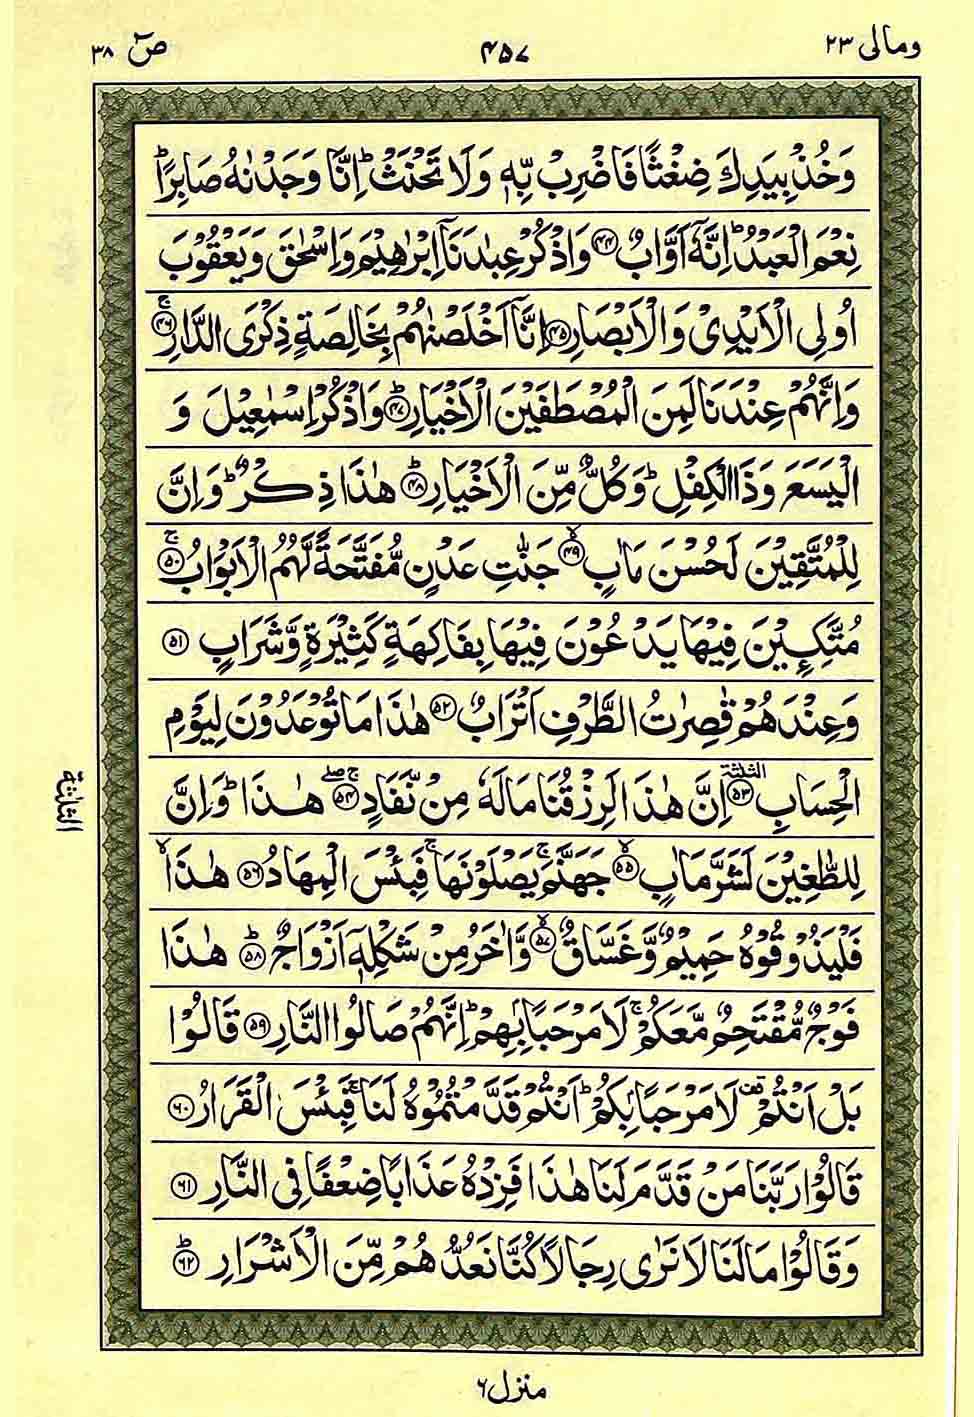 ومالی ۲۳
۴۵۷
صٓ ۳۸
وَخُذْ بِیَدِكَ ضِغْثًا فَاضْرِبْ بِّهٖ وَلَا تَحْنَثْ ؕ اِنَّا وَجَدْنٰهُ صَابِرًا ؕ
نِعْمَ الْعَبْدُ ؕ اِنَّهٗۤ اَوَّابٌ ﴿۴۴﴾ وَاذْكُرْ عِبٰدَنَاۤ اِبْرٰهِیْمَ وَاِسْحٰقَ وَیَعْقُوْبَ
اُولِی الْاَیْدِیْ وَالْاَبْصَارِ ﴿۴۵﴾ اِنَّاۤ اَخْلَصْنٰهُمْ بِخَالِصَةٍ ذِكْرَی الدَّارِ ﴿۴۶﴾ۚ
وَاِنَّهُمْ عِنْدَنَا لَمِنَ الْمُصْطَفَیْنَ الْاَخْیَارِ ﴿۴۷﴾ؕ وَاذْكُرْ اِسْمٰعِیْلَ وَ
الْیَسَعَ وَذَا الْكِفْلِ ؕ وَكُلٌّ مِّنَ الْاَخْیَارِ ﴿۴۸﴾ؕ هٰذَا ذِكْرٌ ؕ وَاِنَّ
لِلْمُتَّقِیْنَ لَحُسْنَ مَاٰبٍ ﴿۴۹﴾ۙ جَنّٰتِ عَدْنٍ مُّفَتَّحَةً لَّهُمُ الْاَبْوَابُ ﴿۵۰﴾ۚ
مُتَّكِـِٕیْنَ فِیْهَا یَدْعُوْنَ فِیْهَا بِفَاكِهَةٍ كَثِیْرَةٍ وَّشَرَابٍ ﴿۵۱﴾
وَعِنْدَهُمْ قٰصِرٰتُ الطَّرْفِ اَتْرَابٌ ﴿۵۲﴾ هٰذَا مَا تُوْعَدُوْنَ لِیَوْمِ
الْحِسَابِ ﴿۵۳﴾ الثلثة اِنَّ هٰذَا لَرِزْقُنَا مَا لَهٗ مِنْ نَّفَادٍ ﴿۵۴﴾ۚۖ هٰذَا ؕ وَاِنَّ
الثلثة
لِلطّٰغِیْنَ لَشَرَّ مَاٰبٍ ﴿۵۵﴾ۙ جَهَنَّمَ ۚ یَصْلَوْنَهَا ۚ فَبِئْسَ الْمِهَادُ ﴿۵۶﴾ هٰذَا ۙ
فَلْیَذُوْقُوْهُ حَمِیْمٌ وَّغَسَّاقٌ ﴿۵۷﴾ۙ وَّاٰخَرُ مِنْ شَكْلِهٖۤ اَزْوَاجٌ ﴿۵۸﴾ؕ هٰذَا
فَوْجٌ مُّقْتَحِمٌ مَّعَكُمْ ۚ لَا مَرْحَبًۢا بِهِمْ ؕ اِنَّهُمْ صَالُوا النَّارِ ﴿۵۹﴾ قَالُوْا
بَلْ اَنْتُمْ ۫ لَا مَرْحَبًۢا بِكُمْ ؕ اَنْتُمْ قَدَّمْتُمُوْهُ لَنَا ۚ فَبِئْسَ الْقَرَارُ ﴿۶۰﴾
قَالُوْا رَبَّنَا مَنْ قَدَّمَ لَنَا هٰذَا فَزِدْهُ عَذَابًا ضِعْفًا فِی النَّارِ ﴿۶۱﴾
وَقَالُوْا مَا لَنَا لَا نَرٰی رِجَالًا كُنَّا نَعُدُّهُمْ مِّنَ الْاَشْرَارِ ﴿۶۲﴾ؕ
منزل ۶